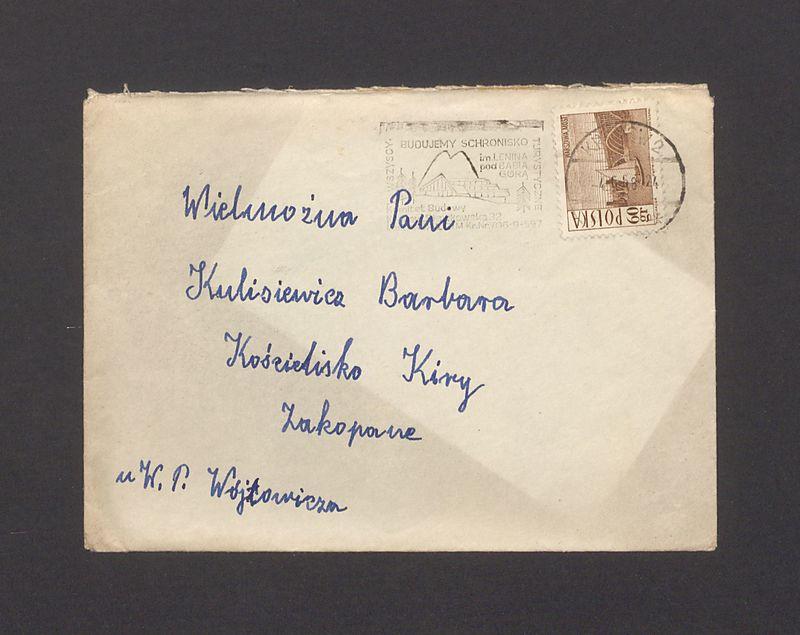 WSZYSCY
BUDUJEMY SCHRONISKO
TURYSTYCZNE
im. LENINA
pod BABIĄ
GÓRĄ
Budowy
32
POLSKA
60 GR
Wielmożna Pani
Kulisiewicz Barbara
Kościelisko Kiry
Zakopane
u W. P. Wójtowicza